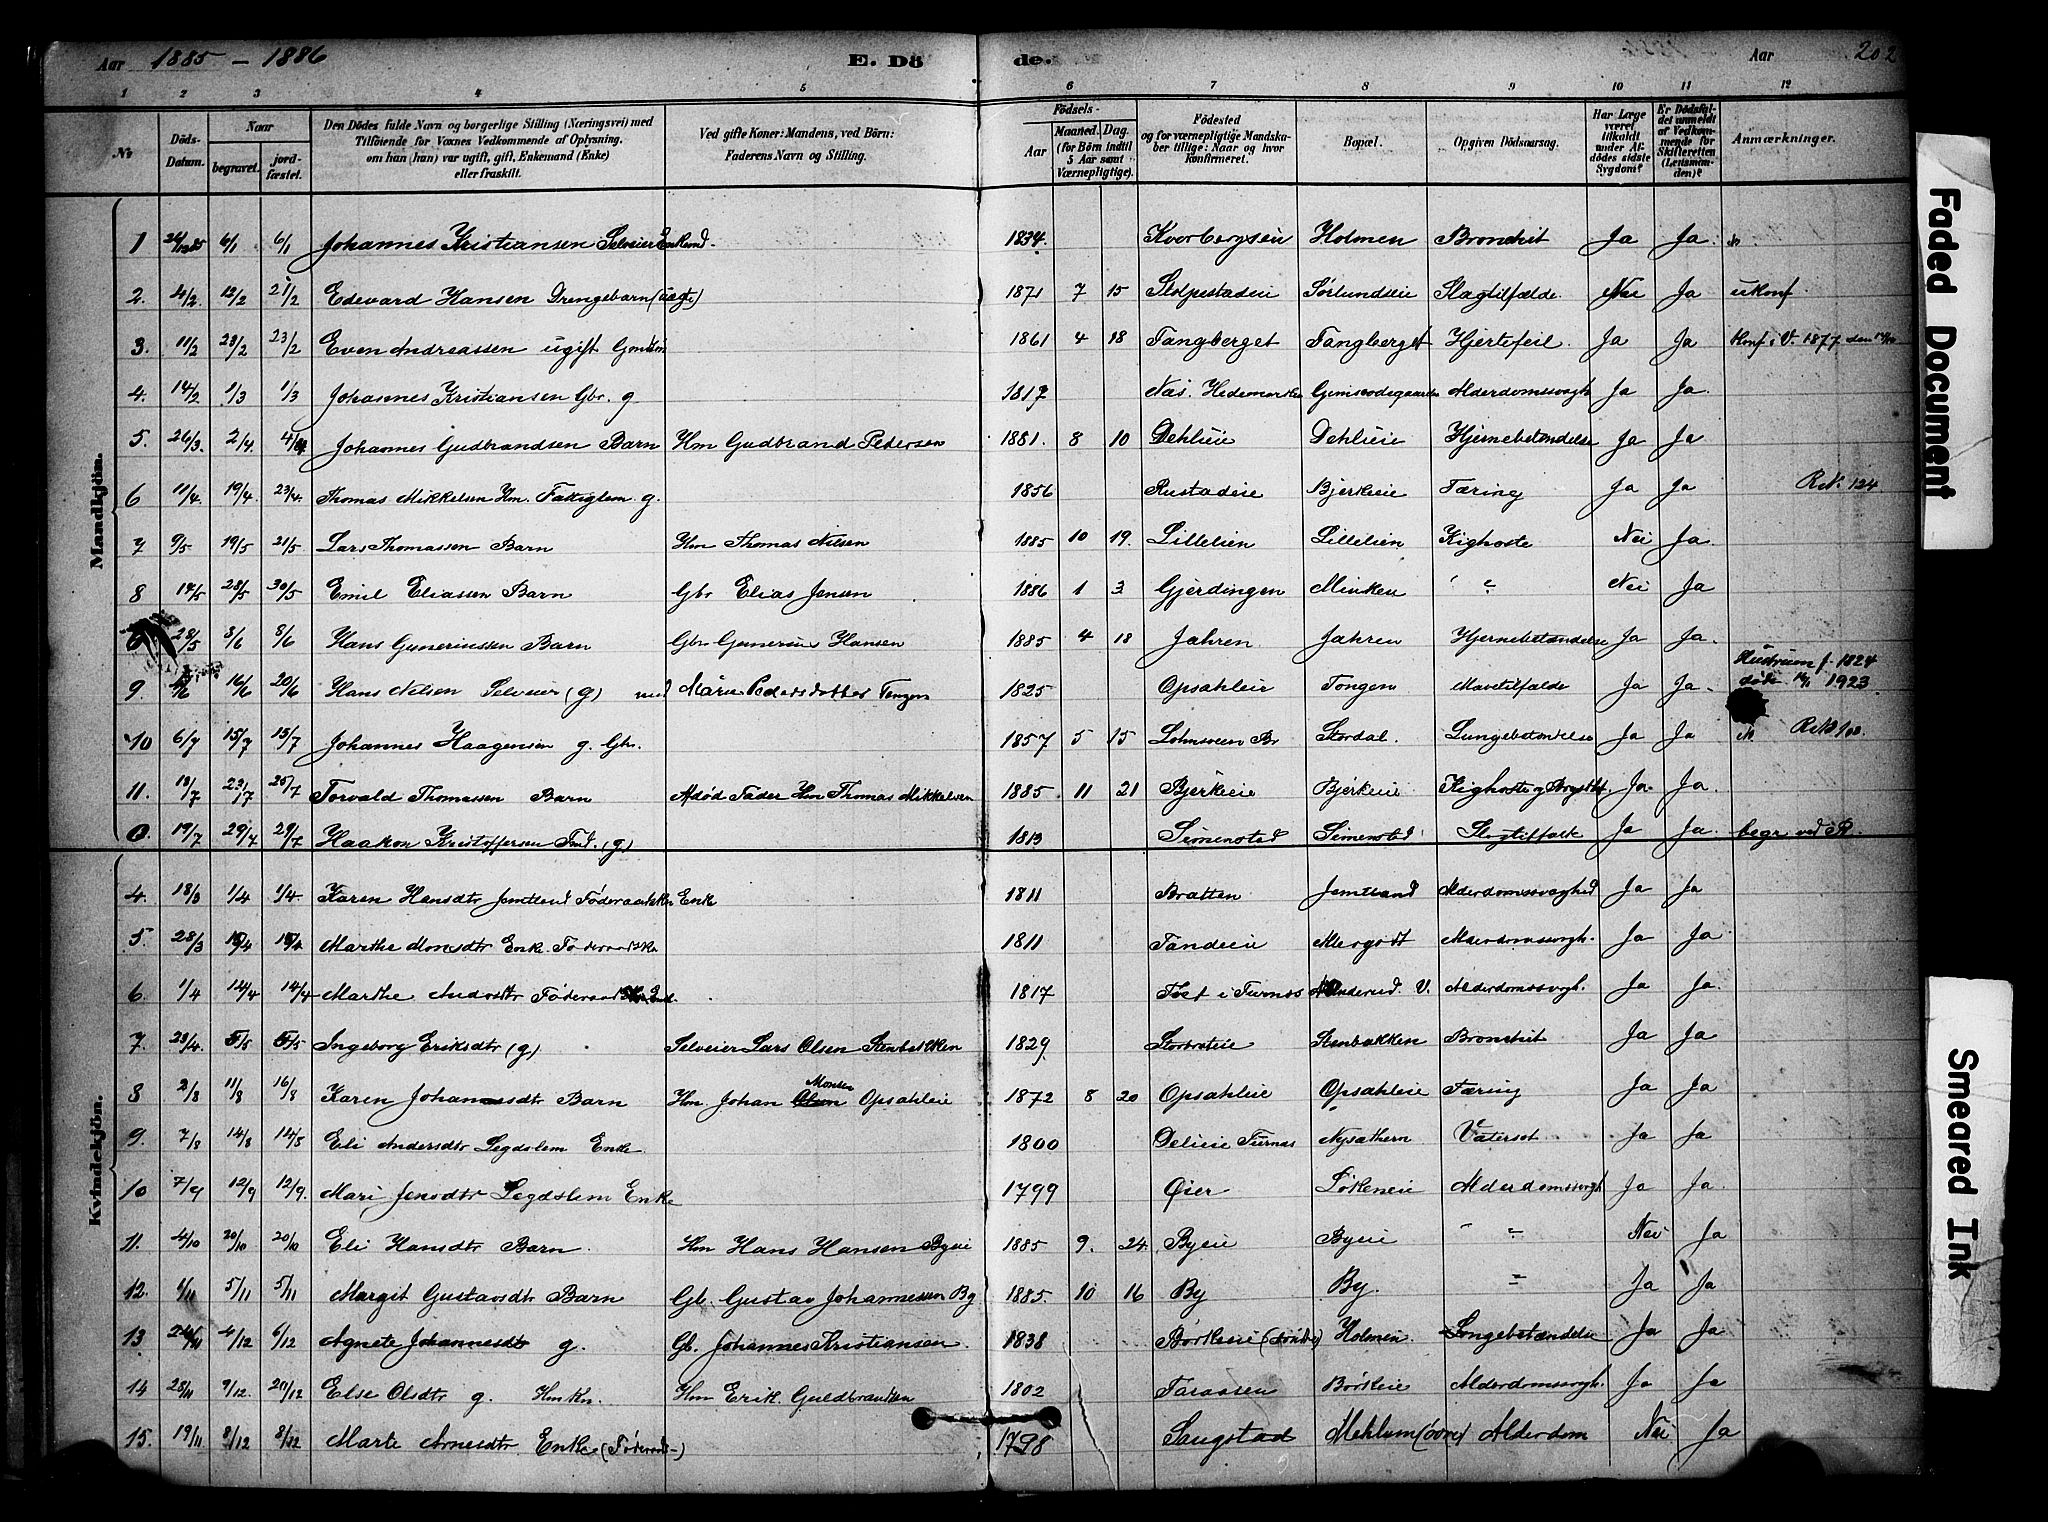 Aar 1885 – 1886 E. Dö de. Aar 202
1 2 3 4 5 6 7 8 9 10 11 12
No Döds-Datum. Naar begravet. jordfæstet. Den Dödes fulde Navn og borgerlige Stilling (Næringsvei) med Tilföiende for Voxnes Vedkommende af Oplysning, om han (hun) var ugift, gift, Enkemand (Enke) eller fraskilt. Ved gifte Koner: Mandens, ved Börn: Faderens Navn og Stilling. Födsels- Aar Maaned. Dag. (for Börn indtil 5 Aar samt Værnepligtige). Födested og for værnepligtige Mandskaber tillige: Naar og hvor Konfirmeret. Bopæl. Opgiven Dödsaarsag. Har Læge været tilkaldt under Afdödes sidste Sygdom? Er Dödsfaldet anmeldt af Vedkommende for Skifteretten (Lensmanden)? Anmærkninger.
Mandkjön.
1 6/1 6/1 Johannes Kristiansen Selveier Enkemd. 1834. Kvorbergseie Holmen Bronchit Ja Ja.
2. 4/2 12/2 21/2 Edevard Hansen Drengebarn (uægte) 1871 7 15 Stolpestadeie Sørlundseie Slagtilfælde. Nei Ja ukonf
3. 11/2 23/2 23/2 Even Andreassen ugift 1861 4 18 Fangberget Fangberget Hjertefeil. Ja Ja Konf i V. 1877 den
4. 14/2 1/3 1/3 Johannes Kristiansen Gbr. g 1817 Næs. Hedemarken Alderdomssvagh Ja Ja
5. 26/3. 2/4. Johannes Gudbrandsen Barn Hm Gudbrand Pedersen 1881. 8 10 Dehlieie Dehlieie Hjernebetændelse Ja Ja
6 11/4. 19/4. 23/4. Thomas Mikkelsen Hm. Fattiglem g. 1856 Rustadeie Bjerkeie Tæring Ja Ja R.N. 124
7 9/5 19/5 21/5 Lars Thomassen Barn Hm Thomas Nilsen 1885 10 19. Lillelien Lillelien Kighoste Nei Ja.
8 14/5 28/5 30/5 Emil Eliassen Barn Gbr Elias Jensen 1886 1 3 Gjerdingen Minken " " Nei Ja
28/5 8/6 8/6 Hans Gunerinssen Barn Gbr Gunerius Hansen 1885 4 18 Jahren Jahren Hjernebetændelse Ja Ja.
9. 16/6 20/6 Hans Nilsen Selveier (g) med Marie Pedersdatter Tongen 1825 Opsahleie Tongen Mavetilfælde Ja Ja. Hustruen f. 1824 døde 1923
10 6/7 15/7 15/7 Johannes Haagensen g. Gbr. 1857 5 15 Stordal. Lungebetændelse Ja Ja
11. 18/7 23/7 25/7 Torvald Thomassen Barn Afdød Fader Hm Thomas Mikkelsen 1885. 11 21 Bjerkeie Bjerkeie Kighoste og Ja. Ja.
0. 19/7 29/4 29/7 Haakon Kristoffersen (g) 1813 Simenstad Simenstad Slagtilfælde Ja Ja. begr ved R.
Kvindekjön.
4. 18/3 1/4 1/4. Karen Hansdtr Jemtland Føderaadskone Enke 1811 Bratten Jemtland Alderdomssvaghed Ja Ja
5. 28/3 15/4 15/4 Marthe Monsdtr Enke. Føderaadske 1811 Tandeie Alderdomssvagh. Ja Ja
6. 1/4 14/4 14/4 Marthe Andrsdtr Føderaads 1817 Toet i Furnes V. Alderdomssvagh. Ja Ja.
7. 23/4. 5/5 5/5 Ingeborg Eriksdtr (g) Selveier Lars Olsen Stenbækken 1829 Stenbakken Bronchit Ja Ja
8 2/8 11/8 16/8 Karen Johannesdtr Barn Hm Johan Monsen Opsahleie 1872 8 20 Opsahleie Opsahleie Tæring Ja Ja
9. 7/8 14/8 14/8 Eli Andersdtr Legdslem Enke. 1800 Delieie Furnæs Nysæthern Vatersot Ja Ja
10 7/9 12/9 12/9. Mari Jensdtr Legdslem Enke 1799 Øier Løkeneie Alderdomssvagh Ja Ja.
11. 4/10 20/10 20/10 Eli Hansdtr Barn. Hm Hans Hansen Byeie 1885 9. 24. Byeie Byeie " " Nei Ja
12. 1/11 5/11 5/11 Margit Gustavsdtr Barn Gb. Gustav Johannessen By 1885. 10 16 By By. " Ja Ja
13. 24/11 4/12 6/12 Agnete Johannesdtr g. Gb. Johannes Kristiansen. 1838 Børkeie Holmen. Lungebetændelse Ja Ja
14 28/11 9/12. 20/12 Else Olsdtr g. Hmkn. Hm Erik Guldbrandsen 1802 Faraasen Børkeie Alderdomssvagh. Ja Ja
15. 19/11 8/12 8/12 Marte Arnesdtr Enke (Føderaads-) 1798 Saugstad Mehlum (øvre) Alderdom Nei Ja
Faded Document
Smeared Ink